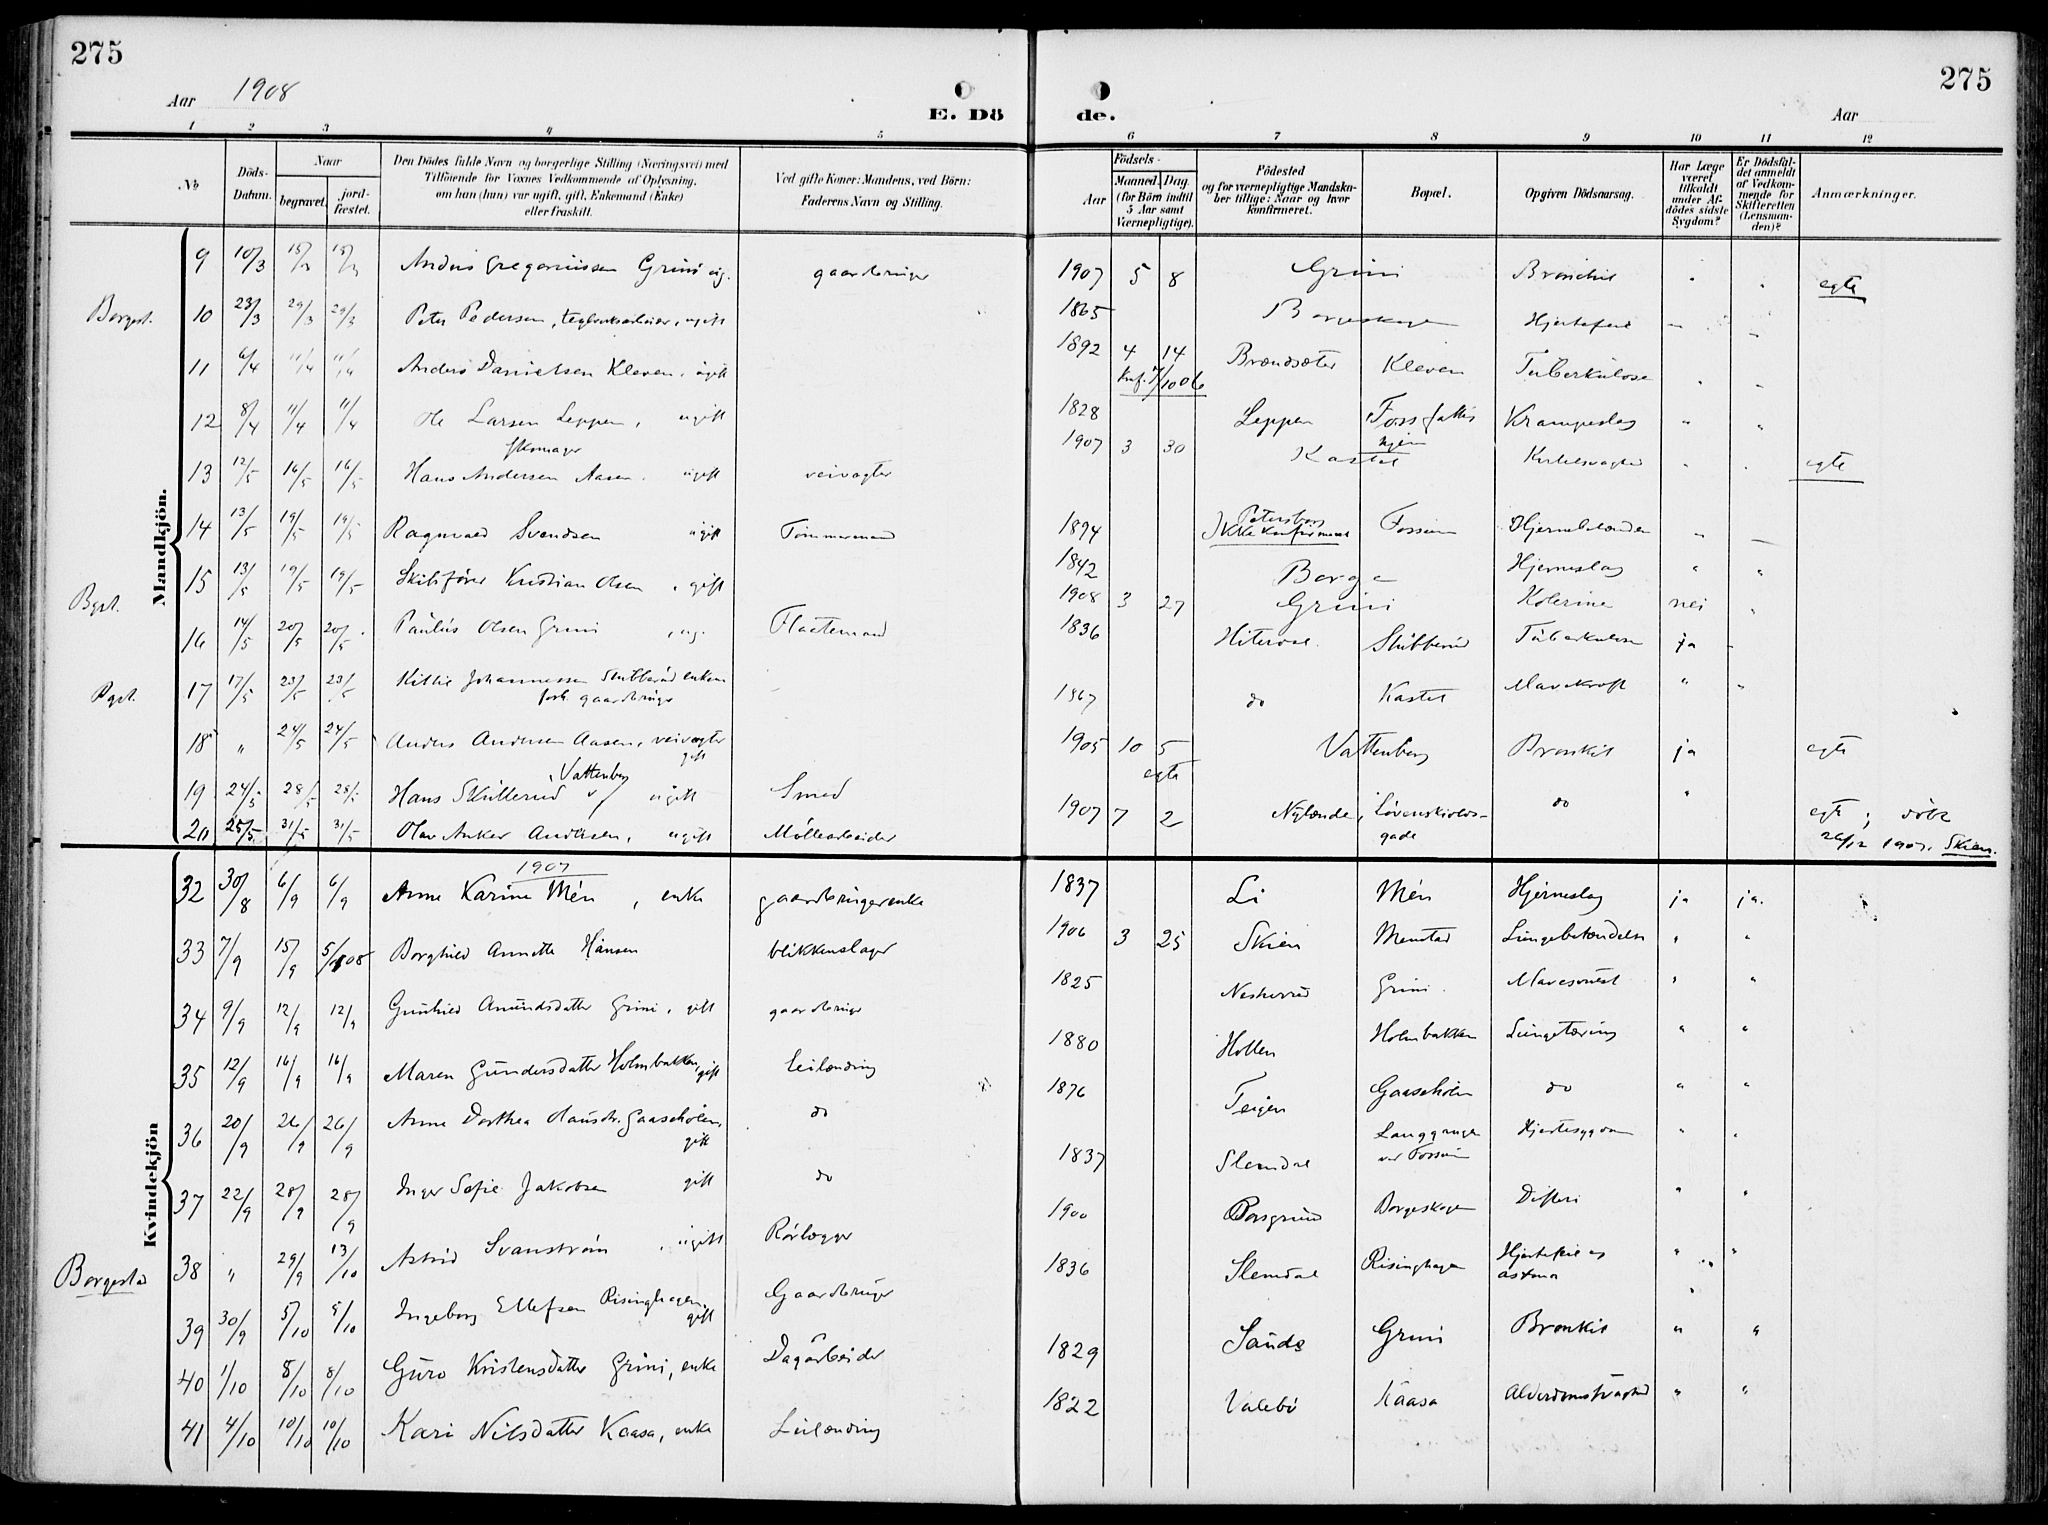 275
Aar 1908
E. Dö
1 2 3 4 5
№ Döds-Datum. Naar begravet. jord-fæstet. Den Dödes fulde Navn og borgerlige Stilling (Næringsvei) med Tilföiende for Voxnes Vedkommende af Oplysning, om han (hun) var ugift, gift, Enkemand (Enke) eller fraskilt. Ved gifte Koner: Mandens, ved Börn: Faderens Navn og Stilling.
Mandkjön.
9 10/3 15/3 15/3 Anders Gregoriussen Grini ug. gaardbruger
Borgest. 10 23/3 29/3 29/3 Peter Pedersen, teglverksarbeider, ugift
11 6/4 11/4 11/4 Anders Danielsen Kleven, ugift
12 8/4 11/4 11/4 Ole Larsen Leppen, ugift
skomager
13 12/5 16/5 16/5 Hans Andersen Aasen, ugift veivogter
14 13/5 19/5 19/5 Ragnvald Svendsen ugift Tømmermand
Bgst. 15 13/5 19/5 19/5 Skibsfører Kristian Olsen, gift
16 14/5 20/5 20/5 Paulus Olsen Grini, ug. Fløtemand
Bgst. 17 17/5 23/5 23/5 Kittil Johannessen Stubberød enkem
forh. gaardbruger
18 " 24/5 24/5 Anders Andersen Aasen, veivogter
gift
19 24/5 28/5 28/5 Hans Skilbred, Vattenberg ugift Smed
20 25/5 31/5 31/5 Olav Anker Andersen, ugift Møllearbeider
Kvindekjön
1907
32 30/8 6/9 6/9 Anne Karine Mén, enke gaardbrugerenke
33 7/9 15/9 5/1 08 Borghild Annette Hansen blikkenslager
34 9/9 12/9 12/9 Gunhild Amundsdatter Grini, gift gaardbruger
35 12/9 16/9 16/9 Maren Gundersdatter Holmbakken, gift Leilænding
36 20/9 26/9 26/9 Anne Dorthea Hansdtr. Gaaseholm, gift do
37 22/9 28/9 28/9 Inger Sofie Jakobsen gift do
Borgestad 38 " 29/9 13/10 Astrid Svanstrøm, ugift Rørlægger
39 30/9 5/10 5/10 Ingeborg Ellefsen Risinghagen, gift Gaardbruger
40 1/10 8/10 8/10 Guro Kristensdatter Grini, enke Dagarbeider
41 4/10 10/10 10/10 Kari Nilsdatter Kaasa, enke Leilænding
275
de.
Aar
6 7 8 9 10 11 12
Födsels- Aar Maaned. Dag. (for Börn indtil 5 Aar samt Værnepligtige). Födested og for værnepligtige Mandskaber tillige: Naar og hvor konfirmeret. Bopæl. Opgiven Dödsaarsag. Har Læge været tilkaldt under Afdödes sidste Sygdom? Er Dödsfaldet anmeldt af Vedkommende for Skifteretten (Lensmanden)? Anmærkninger.
1907 5 8 Grini Bronchit " " egte
1865 Borgeskogen Hjertefeil " "
1892 4 14 Brændsæter Kleven Tuberkulose " "
Knf. 7/10 06
1828 Leppen Foss fattighjem Krampeslag " "
1907 3 30 Kastet " " egte
1894 Petersborg Ikke konfirmeret Fossum " "
1842 Borge Hjerneslag " "
1908 3 27 Grini Kolerine nei "
1836 Hiterdal. Stubberød Tuberkulose ja
1867 do Kastet Mavekræft " "
1905 10 5 egte Vattenberg Bronkit ja egte
1907 7 2 Nylænde, Løvenskiolds-gade do " egte; døbt
26/12 1907. Skien.
1837 Li Mén Hjerneslag ja ja.
1906 3 25 Skien Menstad Lungebetændelse " "
1825 Nesherred Grini. " "
1880 Hollen Holmbakken Lungetæring " "
1876 Teigen Gaaseholm do " "
1837 Slemdal Langgangen ved Fossum Hjertesygdom " "
1900 Porsgrund Borgeskogen Difteri " "
1836 Slemdal Risinghagen Hjertefeil og astma " "
1829 Saude Grini Bronkit " "
1822 Valebö Kaasa Alderdomssvaghed " "